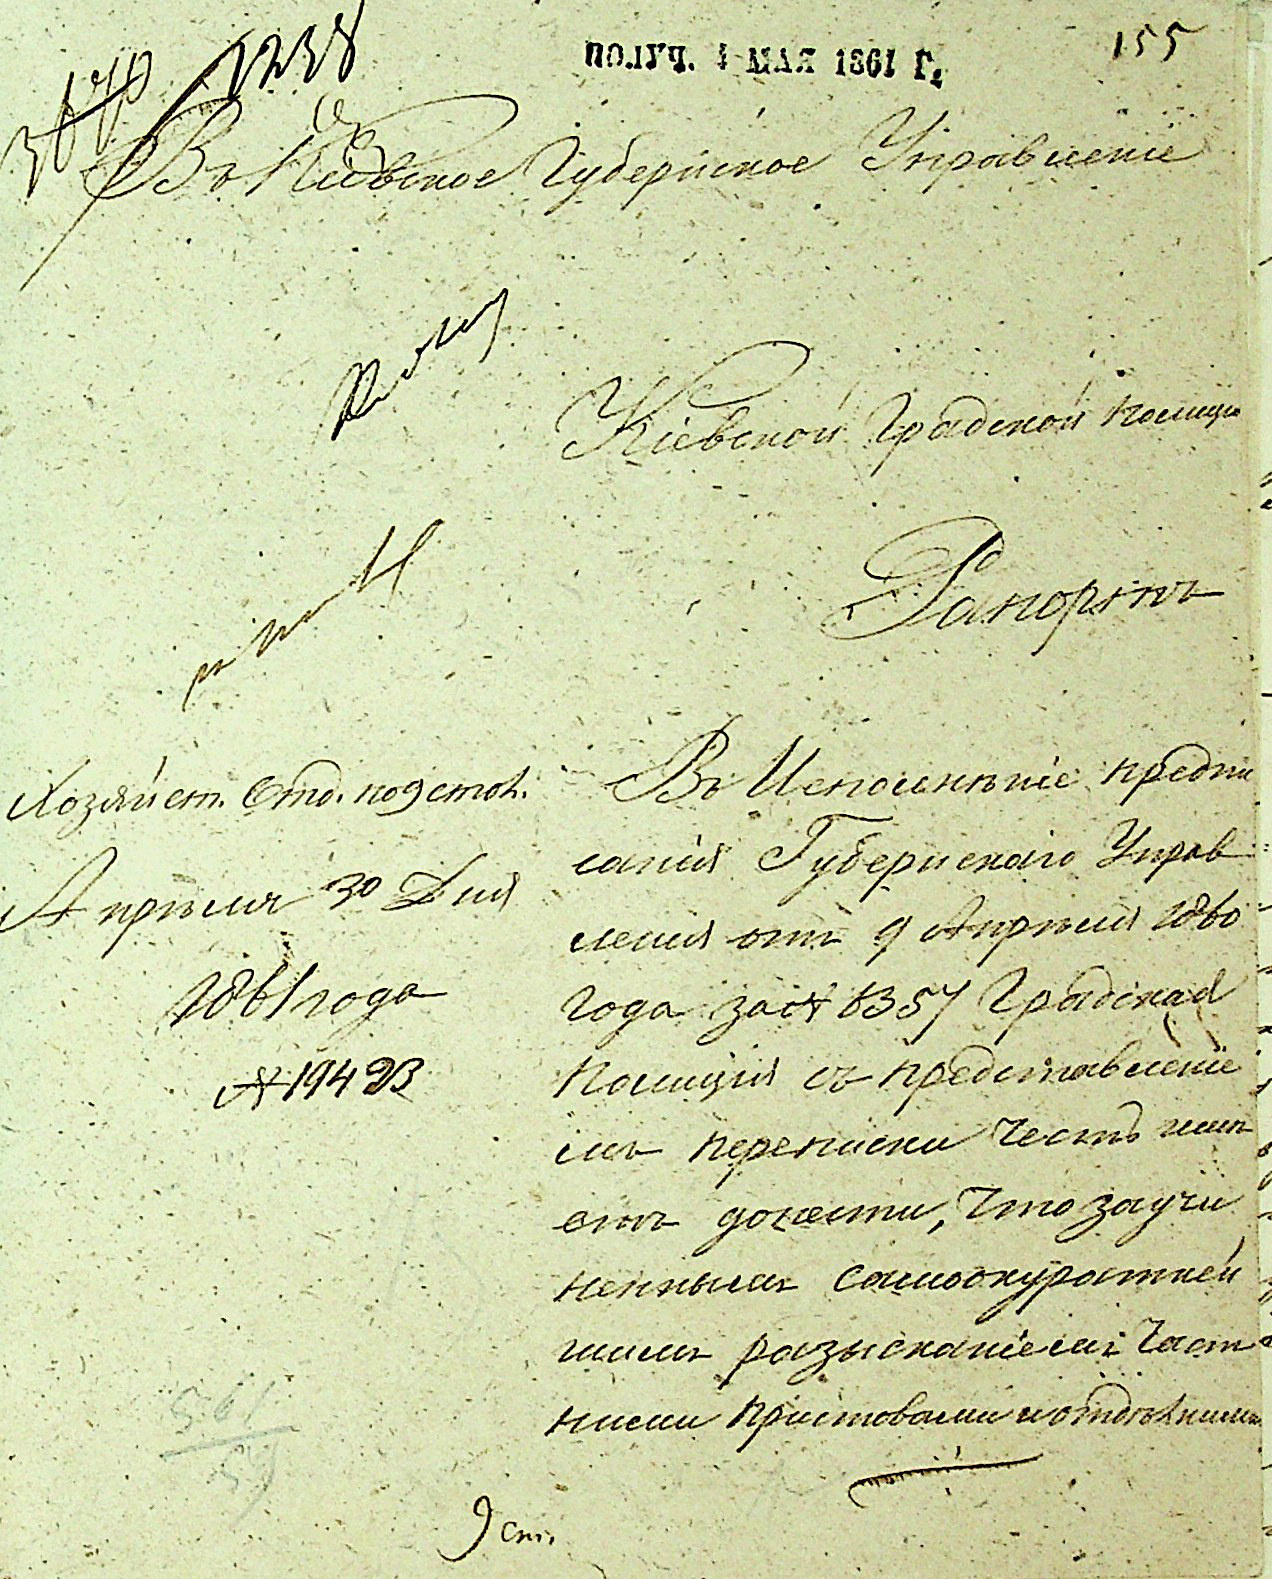 ПОЛУЧ. 4 МАЯ 1861 Г.
155
1238
Въ Кіевское Губернское Управленіе
Кіевской Градской Полиціи
Рапортъ
Хозяйст. Отд. по 9 стол.
Апрѣля 30 Дня
1861 года
№ 19423
Въ Исполненіе предпи
санія Губернскаго Управ
ленія отъ 9 Апрѣля 1860
года за № 6357 Градская
Полиція съ представленіе
мъ переписки честь имѣ
етъ донести, что за учи
неннымъ самоокуратнѣй
шимъ разысканіемъ Част
ными Приставами и отдѣльными
561
9 ст.